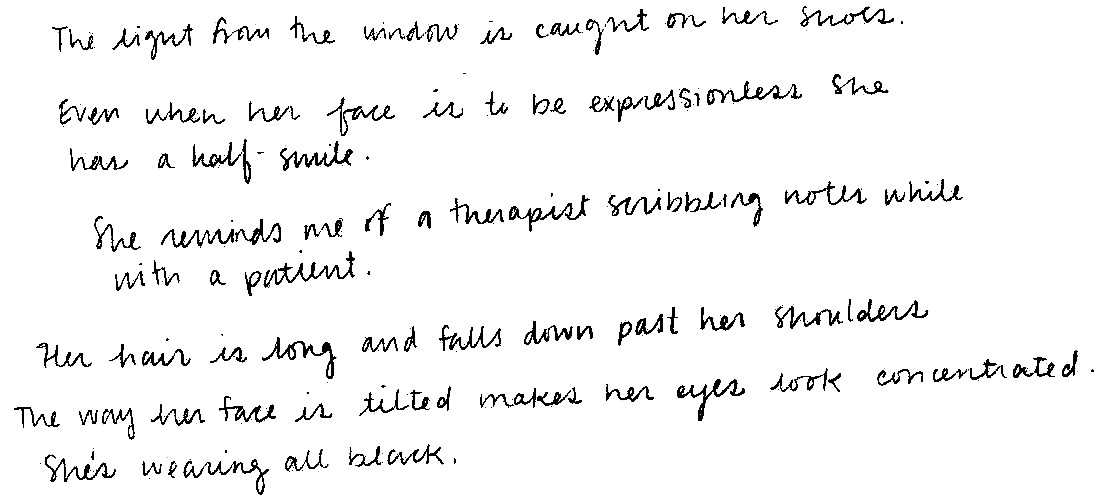 The light from the window is caught on her shoes.
Even when her face is to be expressionless she
has a half-smile.
She reminds me of a therapist scribbling notes while
with a patient.
Her hair is long and falls down past her shoulders
The way her face is tilted makes her eyes look concentrated.
She's wearing all black.